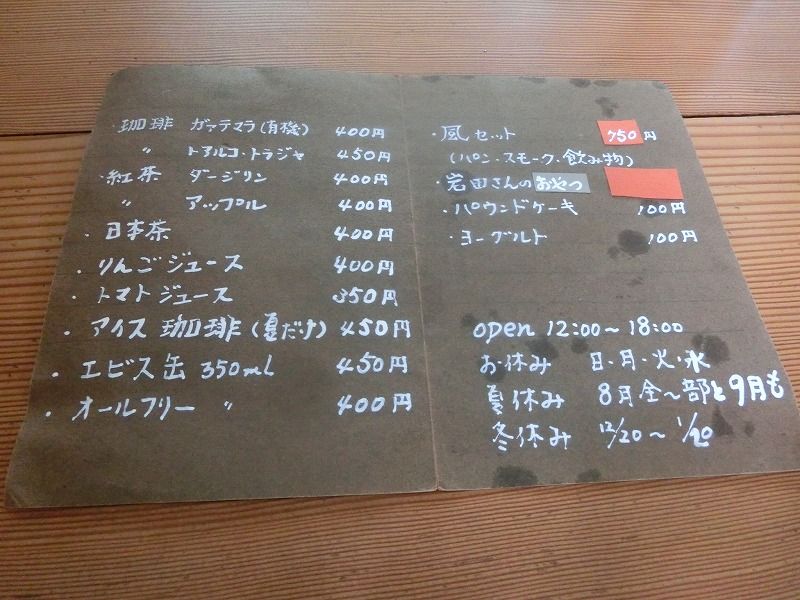 ・珈琲 ガァテマラ(有機) 400円
〃 トアルコ・トラジャ 450円
・紅茶 ダージリン 400円
〃 アップル 400円
・日本茶 400円
・りんごジュース 400円
・トマトジュース 350円
・アイス珈琲(夏だけ) 450円
・エビス缶 350ml 450円
・オールフリー 〃 400円
・風セット 750円
(パン・スモーク・飲み物)
・岩田さんのおやつ
・パウンドケーキ 100円
・ヨーグルト 100円
open 12:00〜18:00
お休み 日・月・火・水
夏休み 8月全〜部と9月も
冬休み 12/20〜1/20